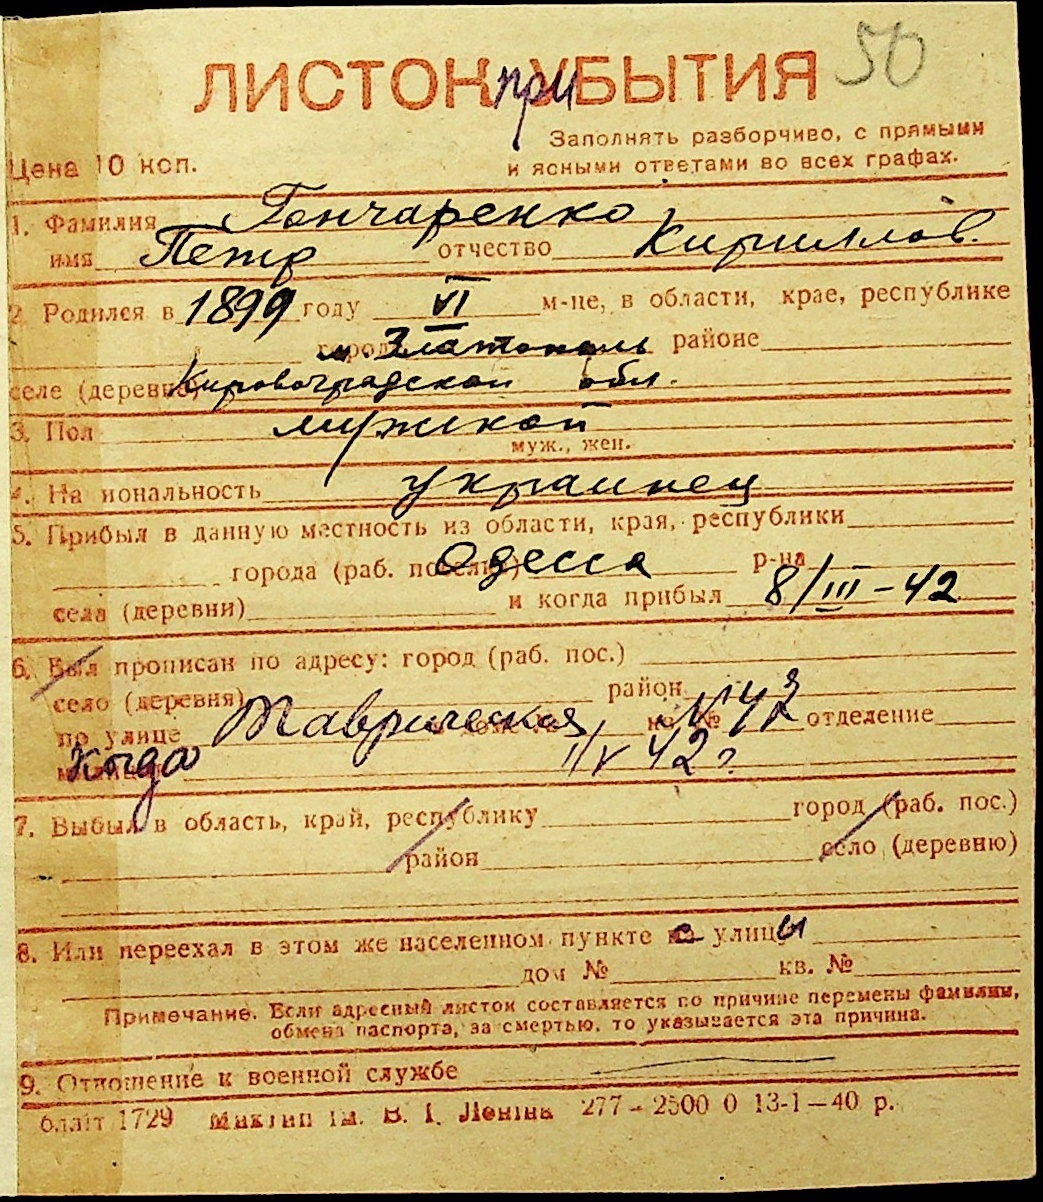 50
ЛИСТОК при УБЫТИЯ
Заполнять разборчиво, с прямыми
и ясными ответами во всех графах.
Цена 10 коп.
1. Фамилия Гончаренко
имя Петр отчество Кириллов.
2. Родился в 1899 году VI м-це, в области, крае, республике
город м. Златополь районе
селе (деревне) Кировоградской обл.
3. Пол мужской
муж., жен.
4. Национальность украинец
5. Прибыл в данную местность из области, края, республики
города (раб. поселка) Одесса р-на
села (деревни) и когда прибыл 8/III-42
6. Был прописан по адресу: город (раб. пос.)
село (деревня) район
по улице Таврическая № отделение
Когда 42 г.
7. Выбыл в область, край, республику город (раб. пос.)
район село (деревню)
8. Или переехал в этом же населенном пункте с улицы
дом № кв. №
Примечание. Если адресный листок составляется по причине перемены фамилии,
обмена паспорта, за смертью, то указывается эта причина.
9. Отношение к военной службе
блліт 1729 Миктип ім. В. І. Леніна 277-2500 0 13-1-40 р.